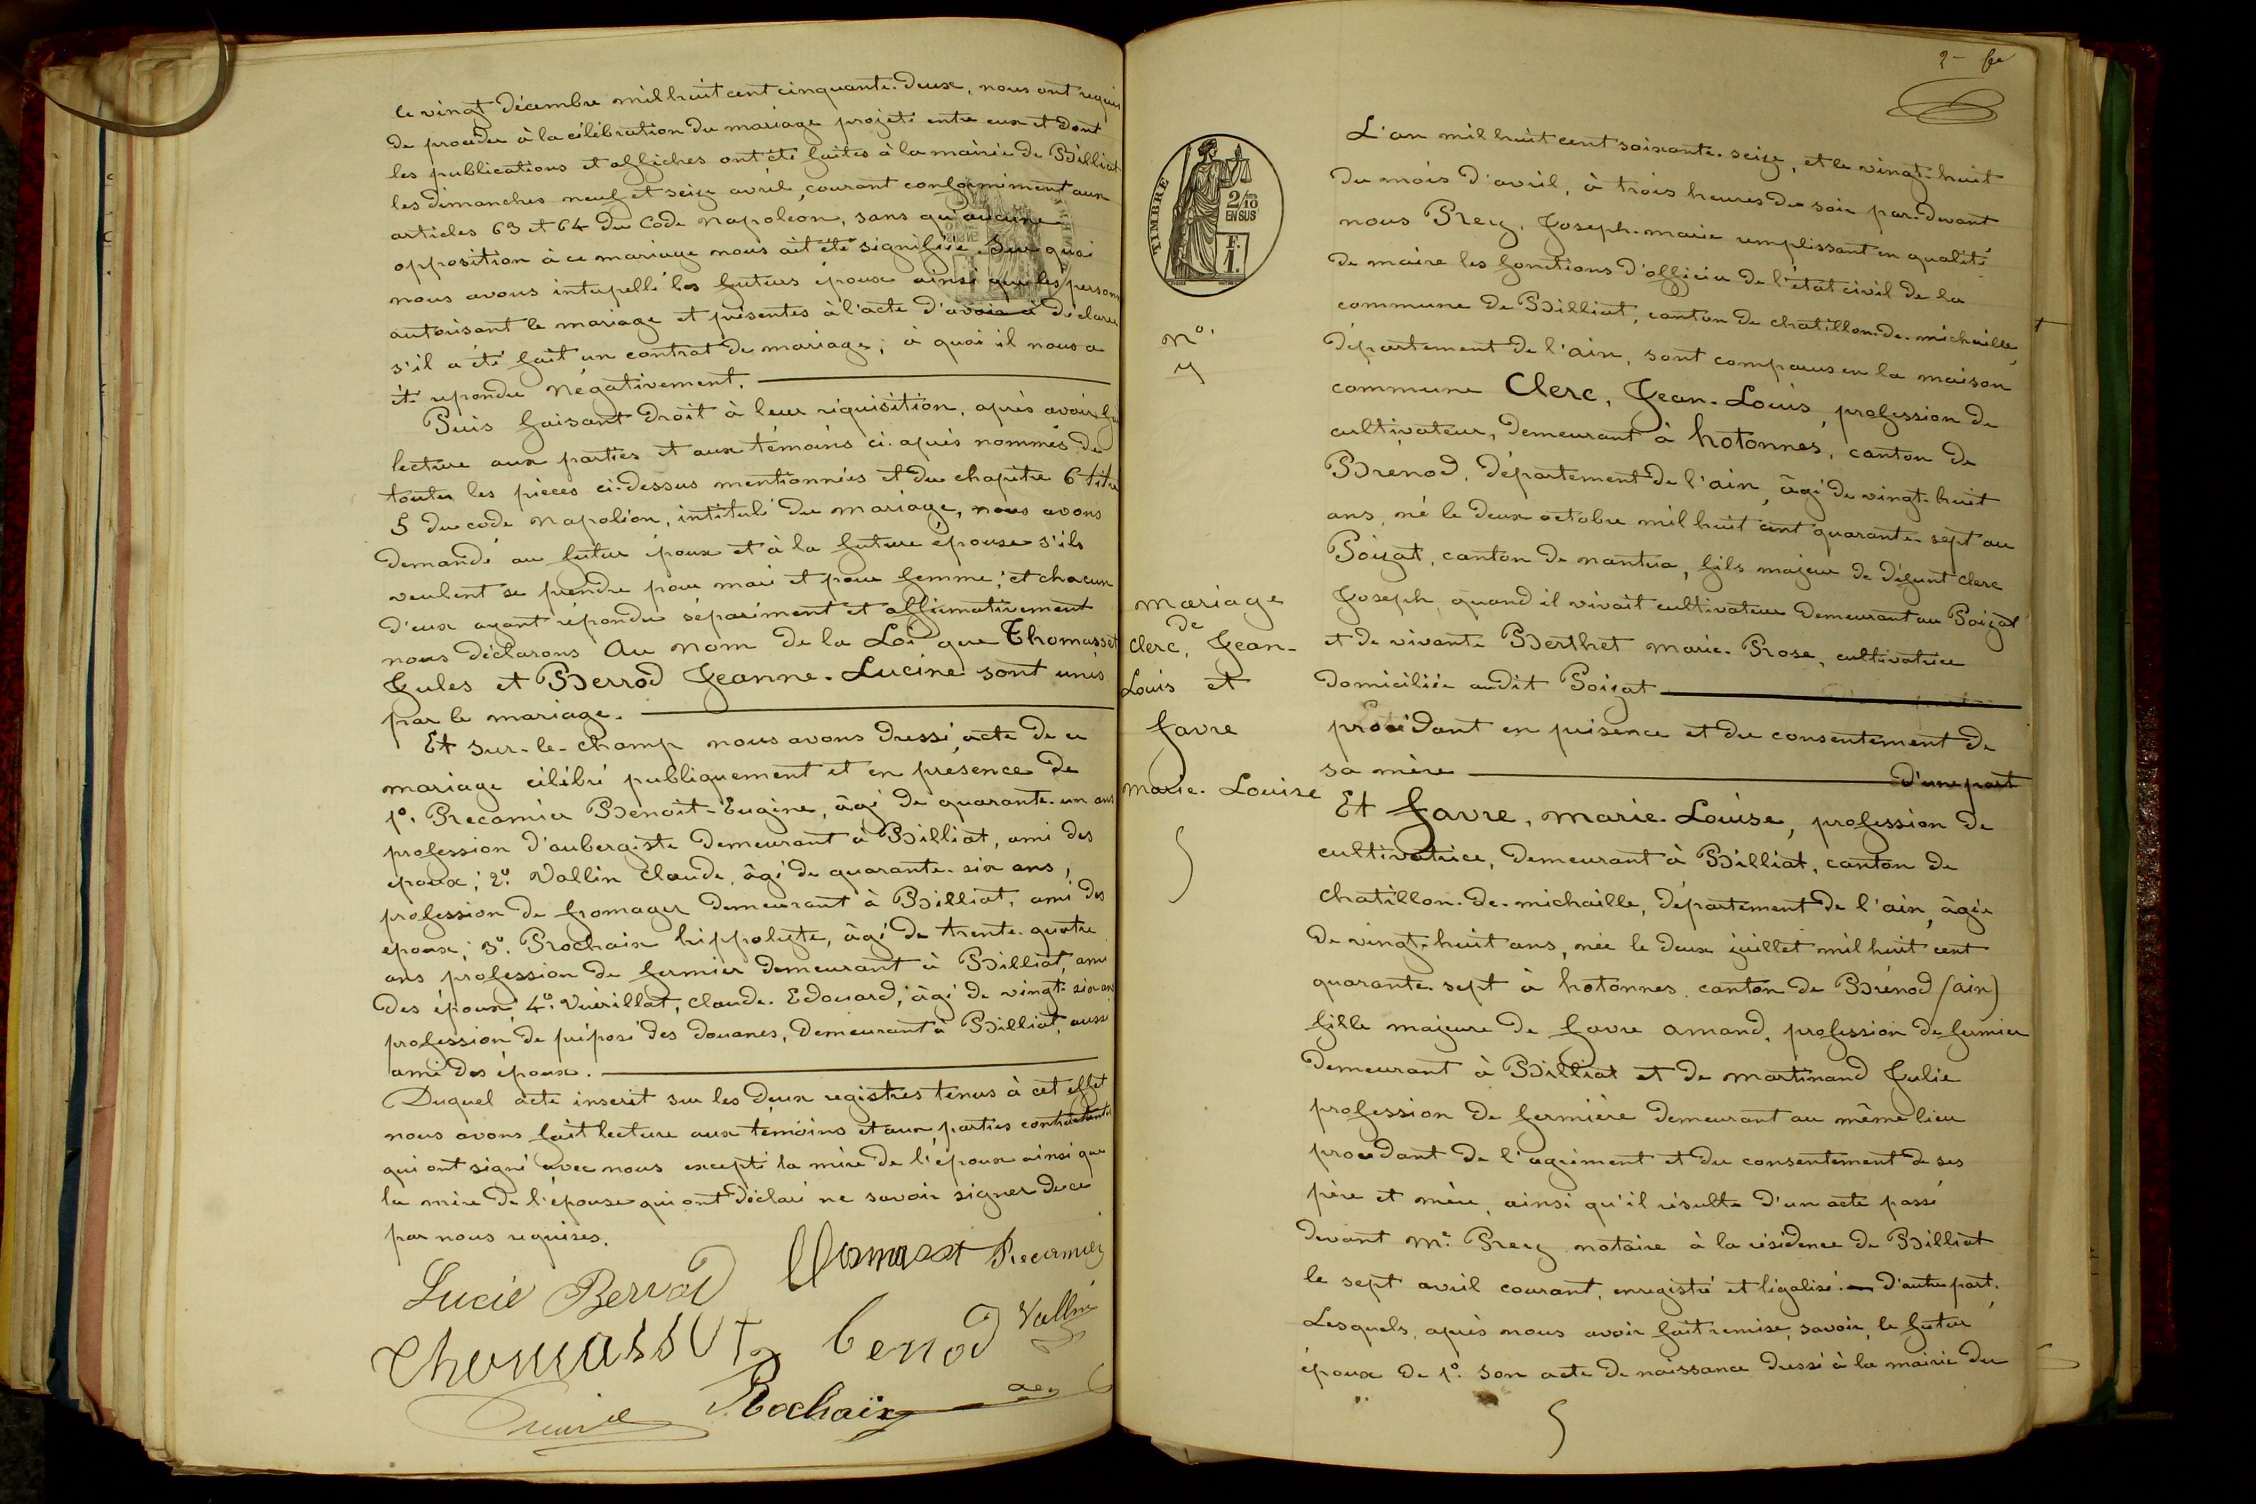 le vingt décembre mil huit cent cinquante-deux, nous ont requis
de procéder à la célébration du mariage projeté entre eux et dont
les publications et affiches ont été faites à la mairie de Billiat
les dimanches neuf et seize avril, courant conformément aux
articles 63 et 64 du Code Napoléon, sans qu'aucune
opposition à ce mariage nous ait été signifiée. Sur quoi
nous avons interpellé les futurs époux ainsi que les personn
autorisant le mariage et présentes à l'acte d'avoir à déclarer
s'il a été fait un contrat de mariage; à quoi il nous a
été répondu négativement.
Puis faisant droit à leur réquisition, après avoir
lecture aux parties et aux témoins ci-après nommés de
toutes les pièces ci-dessus mentionnées et du chapitre 6 titre
5 du code Napoléon, intitulé du mariage, nous avons
demandé au futur époux et à la future épouse s'ils
veulent se prendre pour mari et pour femme; et chacun
d'eux ayant répondu séparément et affirmativement
nous déclarons Au nom de la Loi que Thomasset
Jules et Berrod Jeanne-Lucine sont unis
par le mariage.
Et sur-le-champ nous avons dressé acte de ce
mariage célébré publiquement et en présence de
1º. Récamier Benoît-Eugène, âgé de quarante-un ans
profession d'aubergiste demeurant à Billiat, ami des
époux; 2º. Vallin Claude, âgé de quarante-six ans,
profession de fromager demeurant à Billiat, ami des
époux; 3º. Rochaix hippolyte, âgé de trente-quatre
ans profession de fermier demeurant à Billiat, ami
des époux 4º. Vuérillat, Claude-Edouard, âgé de vingt-six ans
profession de préposé des douanes, demeurant à Billiat, aussi
ami des époux.
Duquel acte inscrit sur les deux registres tenus à cet effet
nous avons fait lecture aux témoins et aux parties contractantes
qui ont signé avec nous excepté la mère de l'époux ainsi que
la mère de l'épouse qui ont déclaré ne savoir signer de ce
par nous requises.
Lucie Berrod Thomasset Récamier
Thomasset Berrod Vallin
Rochaix
2
L'an mil huit cent soixante-seize, et le vingt-huit
du mois d'avril, à trois heures du soir par-devant
nous Rey, Joseph-marie remplissant en qualité
de maire les fonctions d'officier de l'état civil de la
commune de Billiat, canton de chatillon-de-michaille,
département de l'ain, sont comparus en la maison
commune Clerc, Jean-Louis, profession de
cultivateur, demeurant à hotonnes, canton de
Brénod, département de l'ain, âgé de vingt-huit
ans, né le deux octobre mil huit cent quarante-sept au
Poizat, canton de nantua, fils majeur de défunt Clerc
Joseph, quand il vivait cultivateur demeurant au Poizat
et de vivante Berthet Marie-Rose, cultivatrice
domiciliée audit Poizat
procédant en présence et du consentement de
sa mère d'une part
Et favre, marie-Louise, profession de
cultivatrice, demeurant à Billiat, canton de
chatillon-de-michaille, département de l'ain, âgée
de vingt-huit ans, née le deux juillet mil huit cent
quarante-sept à hotonnes, canton de Brénod (ain)
fille majeure de favre amand, profession de fermier
demeurant à Billiat et de martinand Julie
profession de fermière demeurant au même lieu
procédant de l'agrément et du consentement de ses
père et mère, ainsi qu'il résulte d'un acte passé
devant Me. Rey notaire à la résidence de Billiat
le sept avril courant, enregistré et légalisé. d'autre part.
Lesquels, après nous avoir fait remise, savoir, le futur
époux de 1º. son acte de naissance dressé à la mairie du
TIMBRE
2/10
EN SUS
F.
1.
Nº.
4
mariage
de
Clerc, Jean-
Louis et
favre
marie-Louise